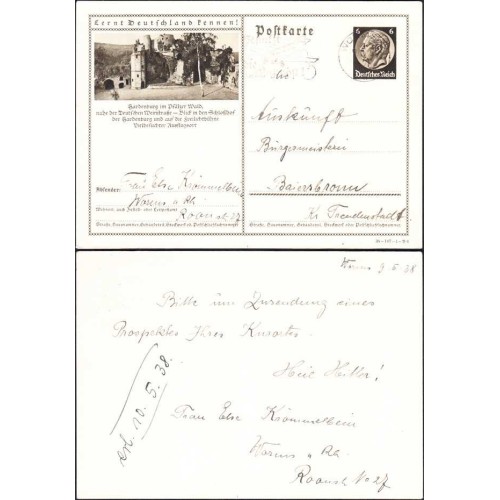 Lernt Deutschland kennen!
Postkarte
6 6
Deutsches Reich
Hardenburg im Pfälzer Wald,
nahe der Deutschen Weinstraße – Blick in den Schloßhof
der Hardenburg und auf der
Absender:
Frau Else Krömmelbein
Worms a Rh.
Wohnort, auch Zustell- oder Leitpostamt
Straße, Hausnummer, Gebäudeteil, Stockwerk od. Postschließfachnummer
Auskunft
Bürgermeisterei
Baiersbronn
Kr. Freudenstadt
Straße, Hausnummer, Gebäudeteil, Stockwerk od. Postschließfachnummer
Worms 9. 5. 38
Bitte um Zusendung eines
Prospektes Ihres Kurortes.
Heil Hitler!
erl. 10. 5. 38.
Frau Else Krömmelbein
Worms a Rh.
No 27